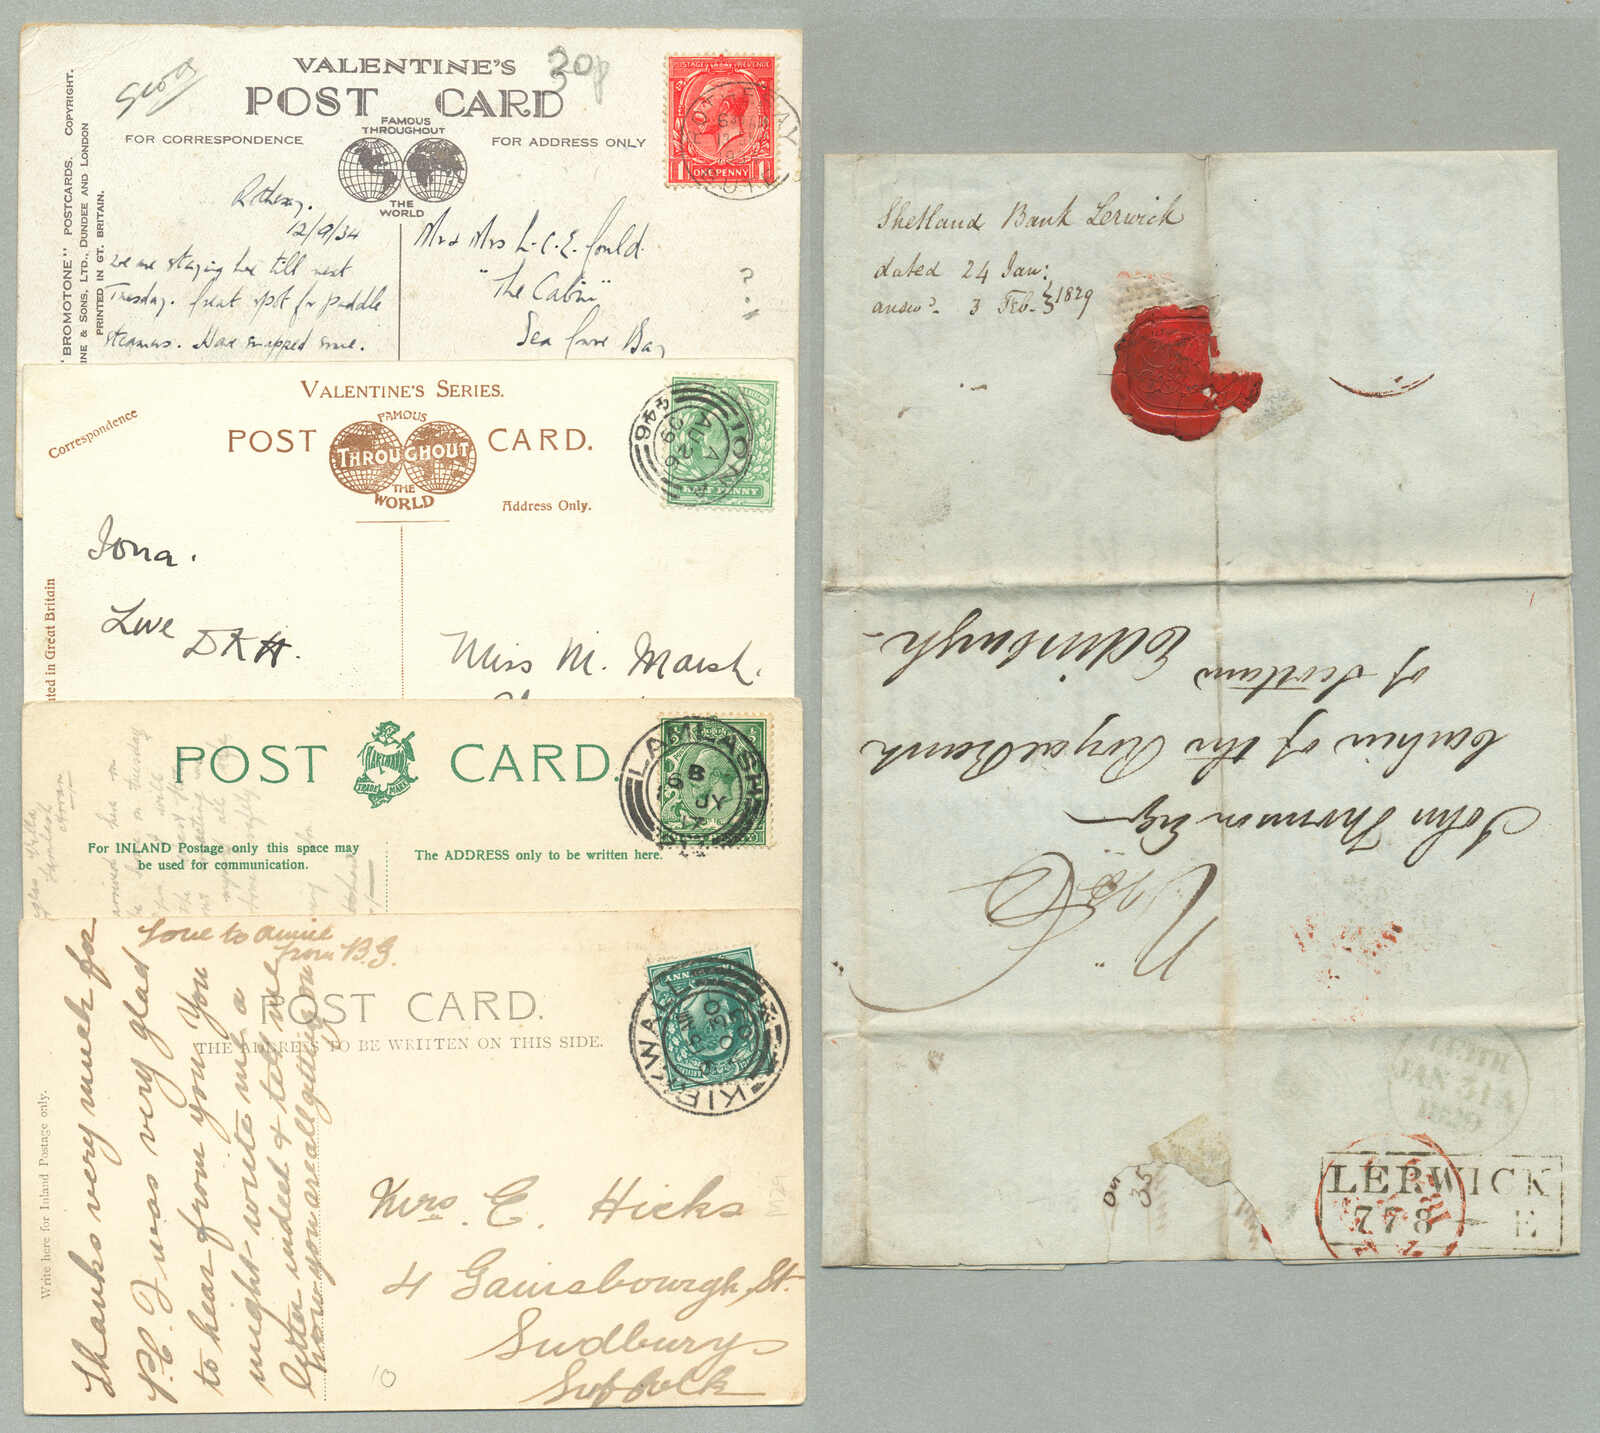 VALENTINE'S
POST CARD
20p
FAMOUS
THROUGHOUT
THE
WORLD
FOR CORRESPONDENCE
FOR ADDRESS ONLY
"BROMOTONE" POSTCARDS. COPYRIGHT.
INE & SONS, LTD., DUNDEE AND LONDON
PRINTED IN GT. BRITAIN.
POSTAGE REVENUE
1 ONE PENNY 1
Rothesay.
12/9/34
we are staying here till next
Tuesday. Great spot for paddle
steamers. Have snapped some.
Mr & Mrs L. C. E. Gould
"The Cabin"
Sea Grove Bay
?
VALENTINE'S SERIES.
POST CARD.
FAMOUS
THROUGHOUT
THE
WORLD
Correspondence
Address Only.
ted in Great Britain
HALF PENNY
IONA
A
AU 26
09
446
Iona.
Love
DKH.
Miss M. Marsh.
POST CARD.
HARTMANN
TRADE MARK
For INLAND Postage only this space may
be used for communication.
The ADDRESS only to be written here.
LAMLASH
6 B
JY
17
Villa
Lamlash
Arran
arrived here on
on Tuesday
Love to Annie
from B.G.
POST CARD.
THE ADDRESS TO BE WRITTEN ON THIS SIDE.
Write here for Inland Postage only.
Thanks very much for
P.C. I was very glad
to hear from you You
might write me a
letter indeed & tell me
how you are all getting on
KIRKWALL
Mrs. E. Hicks
4 Gainsbourgh, St.
Sudbury
Suffolk
10
Shetland Bank Lerwick
dated 24 Jan:
answd. 3 Feb. 1829
John Thomson Esqr
Cashier of the Royal Bank
of Scotland
Edinburgh
LEITH
JAN 31 A
1829
LERWICK
778 - E
35